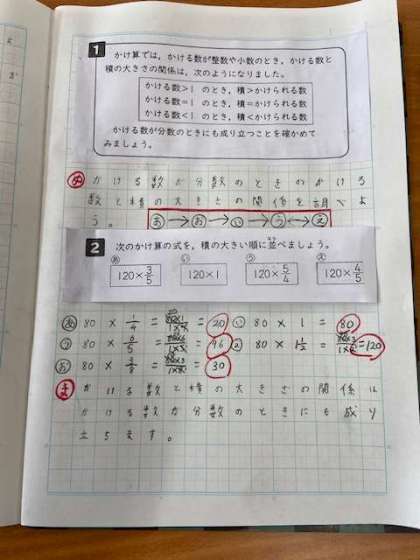 1 かけ算では,かける数が整数や小数のとき,かける数と
積の大きさの関係は,次のようになりました。
かける数>1 のとき,積>かけられる数
かける数=1 のとき,積=かけられる数
かける数<1 のとき,積<かけられる数
かける数が分数のときにも成り立つことを確かめて
みましょう。
かける数が分数のときのかける
数と積の大きさの関係を調べよ
う。 あ→お→い→う→え
2 次のかけ算の式を,積の大きい順に並べましょう。
あ い う え
120×3/5 120×1 120×5/4 120×4/5
あ 80 × 1/4 = = 20 い 80 × 1 = 80
う 80 × 6/5 = = 96 え 80 × 1 1/2 = = 120
お 80 × 3/8 = = 30
ま かける数と積の大きさの関係は
かける数が分数のときにも成り
立ちます。